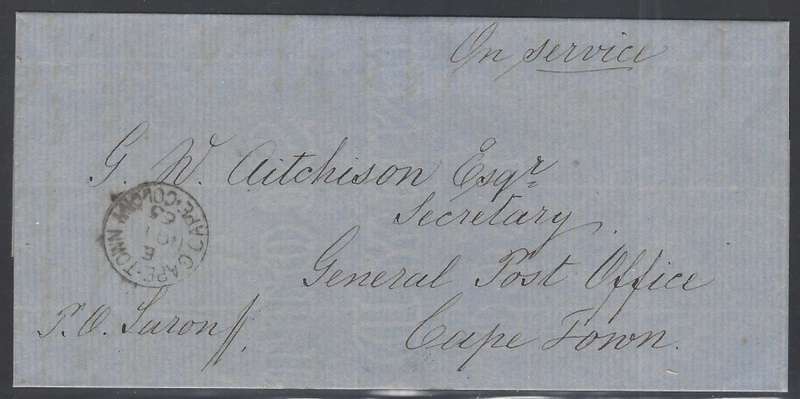 On service
G. W. Aitchison Esqr.
Secretary
General Post Office
Cape Town.
P. O. Saron
CAPE·TOWN
CAPE·COLONY